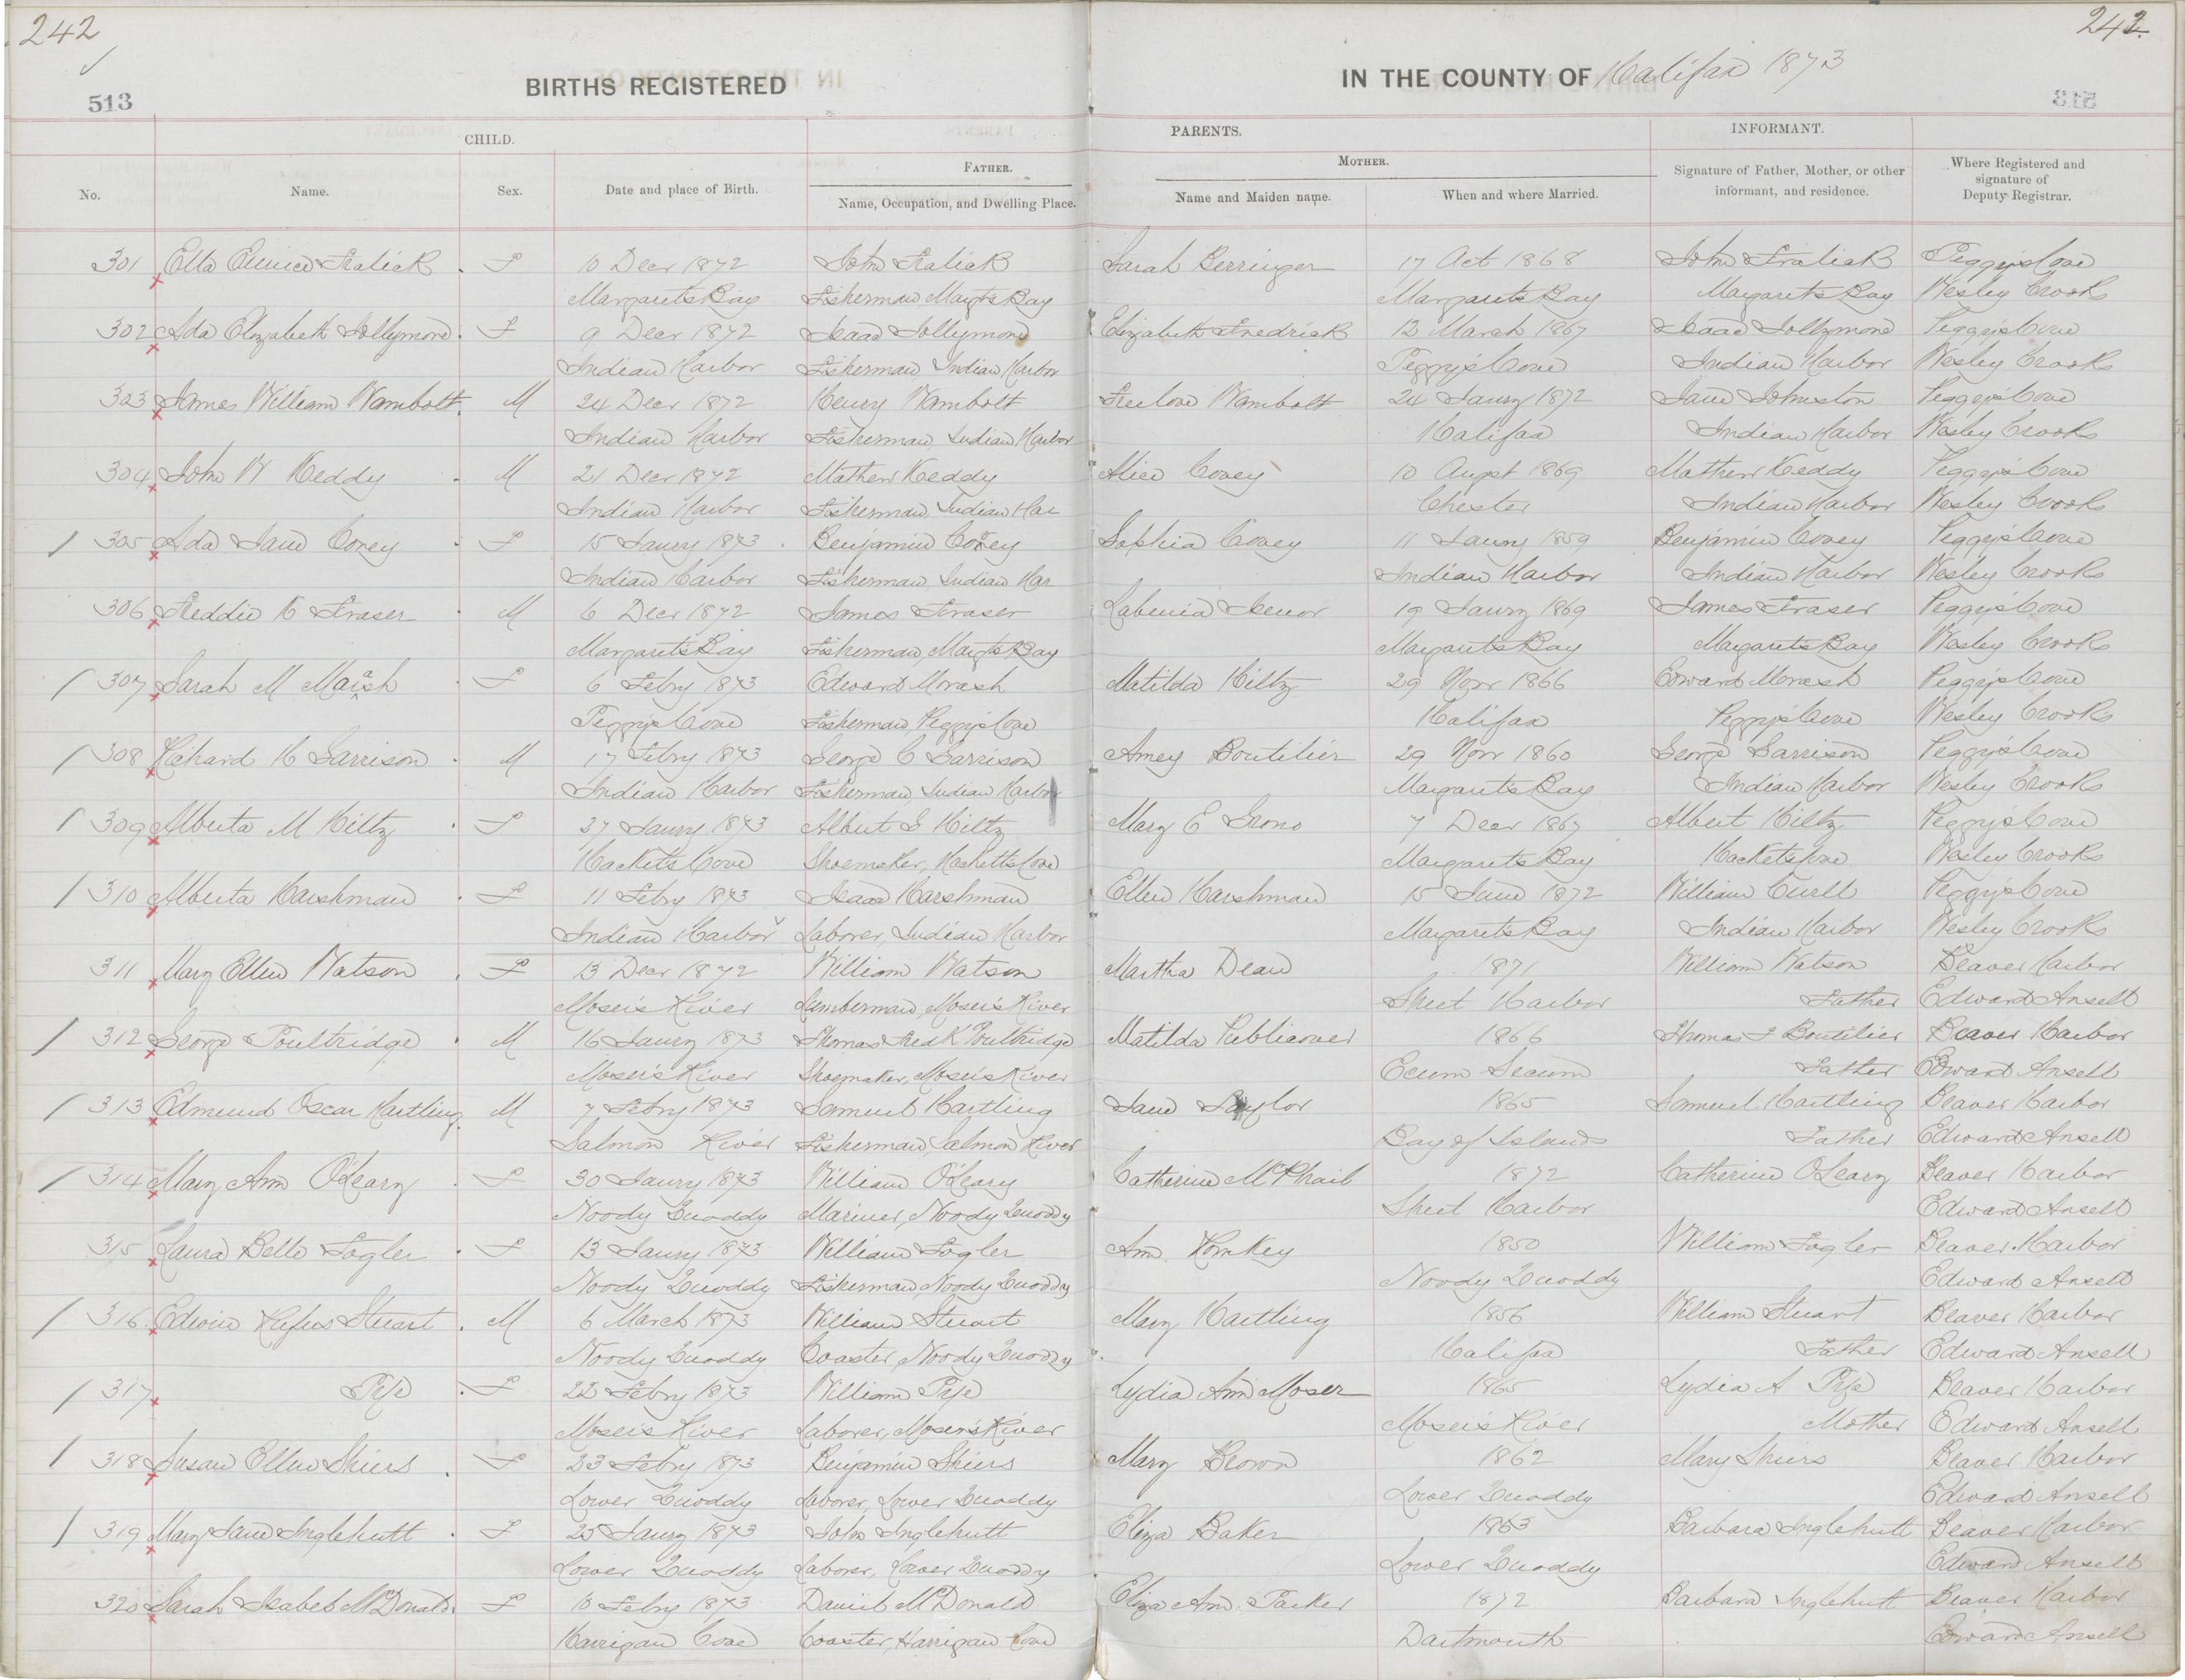 242
242
513
BIRTHS REGISTERED
IN THE COUNTY OF Halifax 1873
CHILD.
PARENTS.
INFORMANT.
FATHER.
MOTHER.
No.
Name.
Sex.
Date and place of Birth.
Name, Occupation, and Dwelling Place.
Name and Maiden name.
When and where Married.
Signature of Father, Mother, or other
informant, and residence.
Where Registered and
signature of
Deputy Registrar.
301 Ella Eunice Fralick F 10 Decr 1872 John Fralick Sarah Berringer 17 Oct 1868 John Fralick Peggys Cove
Margarets Bay Fisherman Margts Bay Margarets Bay Margarets Bay Wesley Crooks
302 Ada Elizabeth Jollymore F 9 Decr 1872 Isaac Jollymore Elizabeth Fredrick 12 March 1867 Isaac Jollymore Peggys Cove
Indian Harbor Fisherman Indian Harbor Peggys Cove Indian Harbor Wesley Crooks
303 James William Wambolt M 24 Decr 1872 Henry Wambolt Freelove Wambolt 24 Janry 1872 Jane Johnston Peggys Cove
Indian Harbor Fisherman Indian Harbor Halifax Indian Harbor Wesley Crooks
304 John W Keddy M 21 Decr 1872 Mathew Keddy Alice Covey 10 Augst 1869 Mathew Keddy Peggys Cove
Indian Harbor Fisherman, Indian Har Chester Indian Harbor Wesley Crooks
305 Ada Jane Covey F 15 Janry 1873 Benjamin Covey Sophia Covey 11 Janry 1859 Benjamin Covey Peggys Cove
Indian Harbor Fisherman, Indian Har Indian Harbor Indian Harbor Wesley Crooks
306 Freddie H Fraser M 6 Decr 1872 James Fraser Labenia Isenor 19 Janry 1869 James Fraser Peggys Cove
Margarets Bay Fisherman, Margts Bay Margarets Bay Margarets Bay Wesley Crooks
307 Sarah M F 6 Febry 1873 Edward Morash Matilda Hiltz 29 Novr 1866 Edward Morash Peggys Cove
Peggys Cove Fisherman Peggys Cove Halifax Peggys Cove Wesley Crooks
308 Richard H Garrison M 17 Febry 1873 George C Garrison Amey Boutilier 29 Novr 1860 George Garrison Peggys Cove
Indian Harbor Fisherman, Indian Harbor Margarets Bay Indian Harbor Wesley Crooks
309 Alberta M Hiltz F 27 Janry 1873 Albert G Hiltz Mary E Grono 7 Decr 1867 Albert Hiltz Peggys Cove
Hackets Cove Shoemaker, Hacketts Cove Margarets Bay Hackets Cove Wesley Crooks
310 Alberta Harshman F 11 Febry 1873 Isaac Harshman Ellen Harshman 15 June 1872 William Curll Peggys Cove
Indian Harbor Laborer, Indian Harbor Margarets Bay Indian Harbor Wesley Crooks
311 Mary Ellen Watson F 13 Decr 1872 William Watson Martha Dean 1871 William Watson Beaver Harbor
Mosers River Lumberman, Mosers River Sheet Harbor Father Edward Ansell
312 George Poultridge M 16 Janry 1873 Thomas Fredk Poultridge Matilda Publicover 1866 Thomas F Boutilier Beaver Harbor
Mosers River Shoemaker, Mosers River Ecum Secum Father Edward Ansell
313 Edmund Oscar Hartling M 7 Febry 1873 Samuel Hartling Jane Taylor 1865 Samuel Hartling Beaver Harbor
Salmon River Fisherman, Salmon River Bay of Islands Father Edward Ansell
314 Mary Ann O'Leary F 30 Janry 1873 William O'Leary Catherine McPhail 1872 Catherine O'Leary Beaver Harbor
Noody Quoddy Mariner, Noody Quoddy Sheet Harbor Edward Ansell
315 Laura Belle Fogler F 13 Janry 1873 William Fogler Ann 1850 William Fogler Beaver Harbor
Noody Quoddy Fisherman, Noody Quoddy Noody Quoddy Edward Ansell
316 Edwin Rufus Stuart M 6 March 1873 William Stuart Mary Hartling 1856 William Stuart Beaver Harbor
Noody Quoddy Coaster, Noody Quoddy Halifax Father Edward Ansell
317 Pye F 22 Febry 1873 William Pye Lydia Ann Moser 1865 Lydia A Pye Beaver Harbor
Mosers River Laborer, Mosers River Mosers River Mother Edward Ansell
318 Susan Ellen Shiers F 23 Febry 1873 Benjamin Shiers Mary Brown 1862 Mary Shiers Beaver Harbor
Lower Quoddy Laborer, Lower Quoddy Lower Quoddy Edward Ansell
319 Mary Jane Inglehutt F 25 Janry 1873 John Inglehutt Eliza Baker 1863 Barbara Inglehutt Beaver Harbor
Lower Quoddy Laborer, Lower Quoddy Lower Quoddy Edward Ansell
320 Sarah Isabel McDonald F 13 Febry 1873 Daniel McDonald Eliza Ann Parker 1872 Barbara Inglehutt Beaver Harbor
Harrigan Cove Coaster, Harrigan Cove Dartmouth Edward Ansell